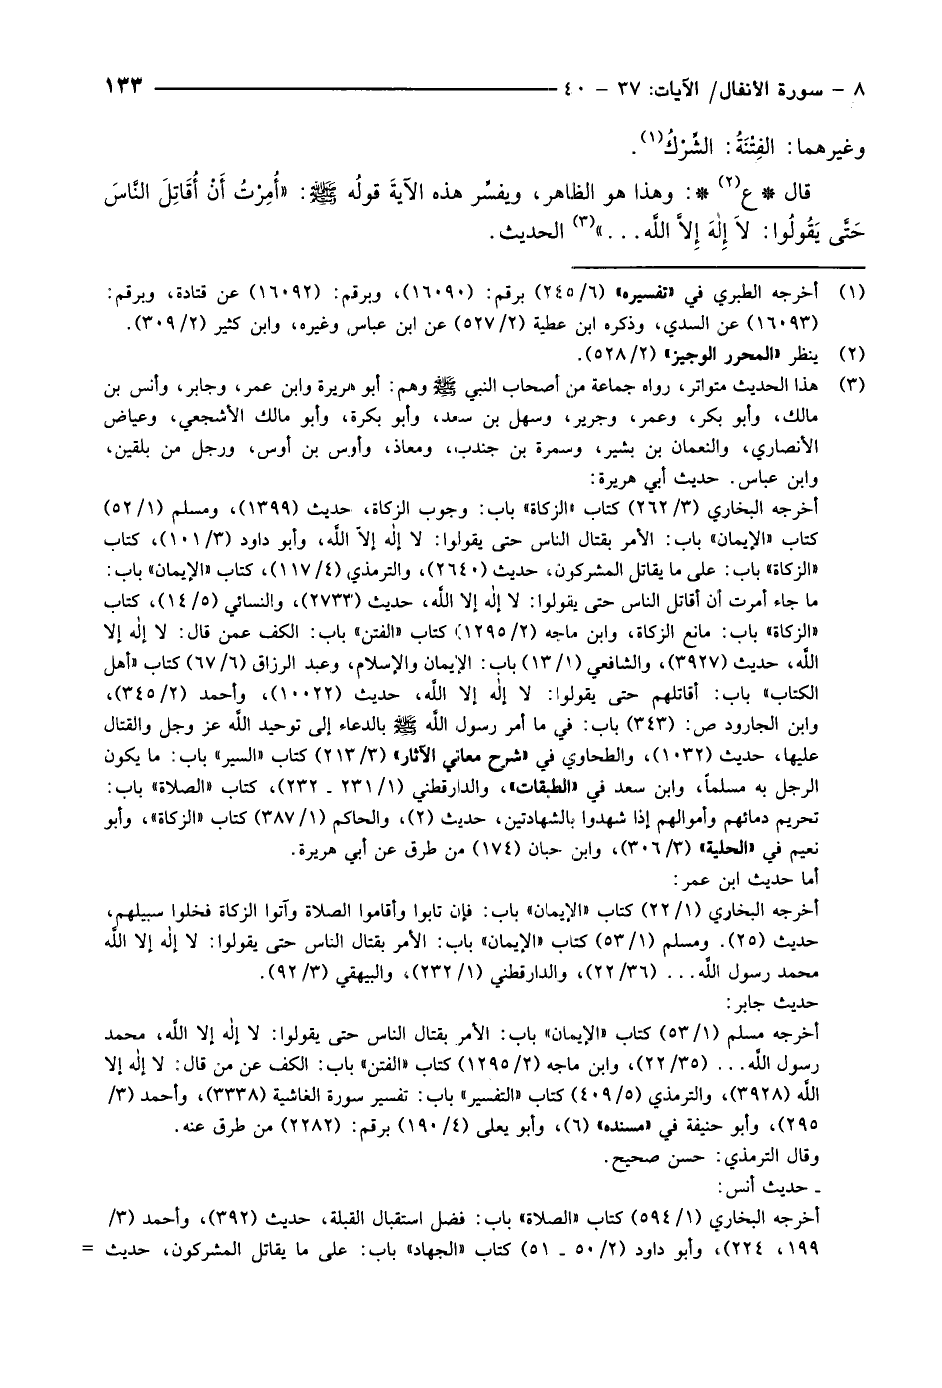 ٨ - سورة الأنفال/ الآيات: ٣٧ - ٤٠ ١٣٣
وغيرهما: الفِتْنَةُ: الشِّرْكُ(١).
قال * ع(٢) *: وهذا هو الظاهر، ويفسِّر هذه الآيةَ قولُه ﷺ: «أُمِرْتُ أَنْ أُقَاتِلَ النَّاسَ
حَتَّى يَقُولُوا: لاَ إِلٰهَ إِلاَّ اللَّه...»(٣) الحديث.
(١) أخرجه الطبري في «تفسيره» (٦/ ٢٤٥) برقم: (١٦٠٩٠)، وبرقم: (١٦٠٩٢) عن قتادة، وبرقم:
(١٦٠٩٣) عن السدي، وذكره ابن عطية (٢/ ٥٢٧) عن ابن عباس وغيره، وابن كثير (٢/ ٣٠٩).
(٢) ينظر «المحرر الوجيز» (٢/ ٥٢٨).
(٣) هذا الحديث متواتر، رواه جماعة من أصحاب النبي ﷺ وهم: أبو هريرة وابن عمر، وجابر، وأنس بن
مالك، وأبو بكر، وعمر، وجرير، وسهل بن سعد، وأبو بكرة، وأبو مالك الأشجعي، وعياض
الأنصاري، والنعمان بن بشير، وسمرة بن جندب، ومعاذ، وأوس بن أوس، ورجل من بلقين،
وابن عباس. حديث أبي هريرة:
أخرجه البخاري (٣/ ٢٦٢) كتاب «الزكاة» باب: وجوب الزكاة، حديث (١٣٩٩)، ومسلم (١/ ٥٢)
كتاب «الإيمان» باب: الأمر بقتال الناس حتى يقولوا: لا إلٰه إلاّ اللَّه، وأبو داود (٣/ ١٠١)، كتاب
«الزكاة» باب: على ما يقاتل المشركون، حديث (٢٦٤٠)، والترمذي (٤/ ١١٧)، كتاب «الإيمان» باب:
ما جاء أمرت أن أقاتل الناس حتى يقولوا: لا إلٰه إلا اللَّه، حديث (٢٧٣٣)، والنسائي (٥/ ١٤)، كتاب
«الزكاة» باب: مانع الزكاة، وابن ماجه (٢/ ١٢٩٥) كتاب «الفتن» باب: الكف عمن قال: لا إلٰه إلا
اللَّه، حديث (٣٩٢٧)، والشافعي (١/ ١٣) باب: الإيمان والإسلام، وعبد الرزاق (٦/ ٦٧) كتاب «أهل
الكتاب» باب: أقاتلهم حتى يقولوا: لا إلٰه إلا اللَّه، حديث (١٠٠٢٢)، وأحمد (٢/ ٣٤٥)،
وابن الجارود ص: (٣٤٣) باب: في ما أمر رسول اللَّه ﷺ بالدعاء إلى توحيد اللَّه عز وجل والقتال
عليها، حديث (١٠٣٢)، والطحاوي في «شرح معاني الآثار» (٣/ ٢١٣) كتاب «السير» باب: ما يكون
الرجل به مسلماً، وابن سعد في «الطبقات»، والدارقطني (١/ ٢٣١ - ٢٣٢)، كتاب «الصلاة» باب:
تحريم دمائهم وأموالهم إذا شهدوا بالشهادتين، حديث (٢)، والحاكم (١/ ٣٨٧) كتاب «الزكاة»، وأبو
نعيم في «الحلية» (٣/ ٣٠٦)، وابن حبان (١٧٤) من طرق عن أبي هريرة.
أما حديث ابن عمر:
أخرجه البخاري (١/ ٢٢) كتاب «الإيمان» باب: فإن تابوا وأقاموا الصلاة وآتوا الزكاة فخلوا سبيلهم،
حديث (٢٥). ومسلم (١/ ٥٣) كتاب «الإيمان» باب: الأمر بقتال الناس حتى يقولوا: لا إلٰه إلا اللَّه
محمد رسول اللَّه... (٢٢/٣٦)، والدارقطني (١/ ٢٣٢)، والبيهقي (٣/ ٩٢).
حديث جابر:
أخرجه مسلم (١/ ٥٣) كتاب «الإيمان» باب: الأمر بقتال الناس حتى يقولوا: لا إلٰه إلا اللَّه، محمد
رسول اللَّه... (٢٢/٣٥)، وابن ماجه (٢/ ١٢٩٥) كتاب «الفتن» باب: الكف عن من قال: لا إلٰه إلا
اللَّه (٣٩٢٨)، والترمذي (٥/ ٤٠٩) كتاب «التفسير» باب: تفسير سورة الغاشية (٣٣٣٨)، وأحمد (٣/
٢٩٥)، وأبو حنيفة في «مسنده» (٦)، وأبو يعلى (٤/ ١٩٠) برقم: (٢٢٨٢) من طرق عنه.
وقال الترمذي: حسن صحيح.
- حديث أنس:
أخرجه البخاري (١/ ٥٩٤) كتاب «الصلاة» باب: فضل استقبال القبلة، حديث (٣٩٢)، وأحمد (٣/
١٩٩، ٢٢٤)، وأبو داود (٢/ ٥٠ - ٥١) كتاب «الجهاد» باب: على ما يقاتل المشركون، حديث =